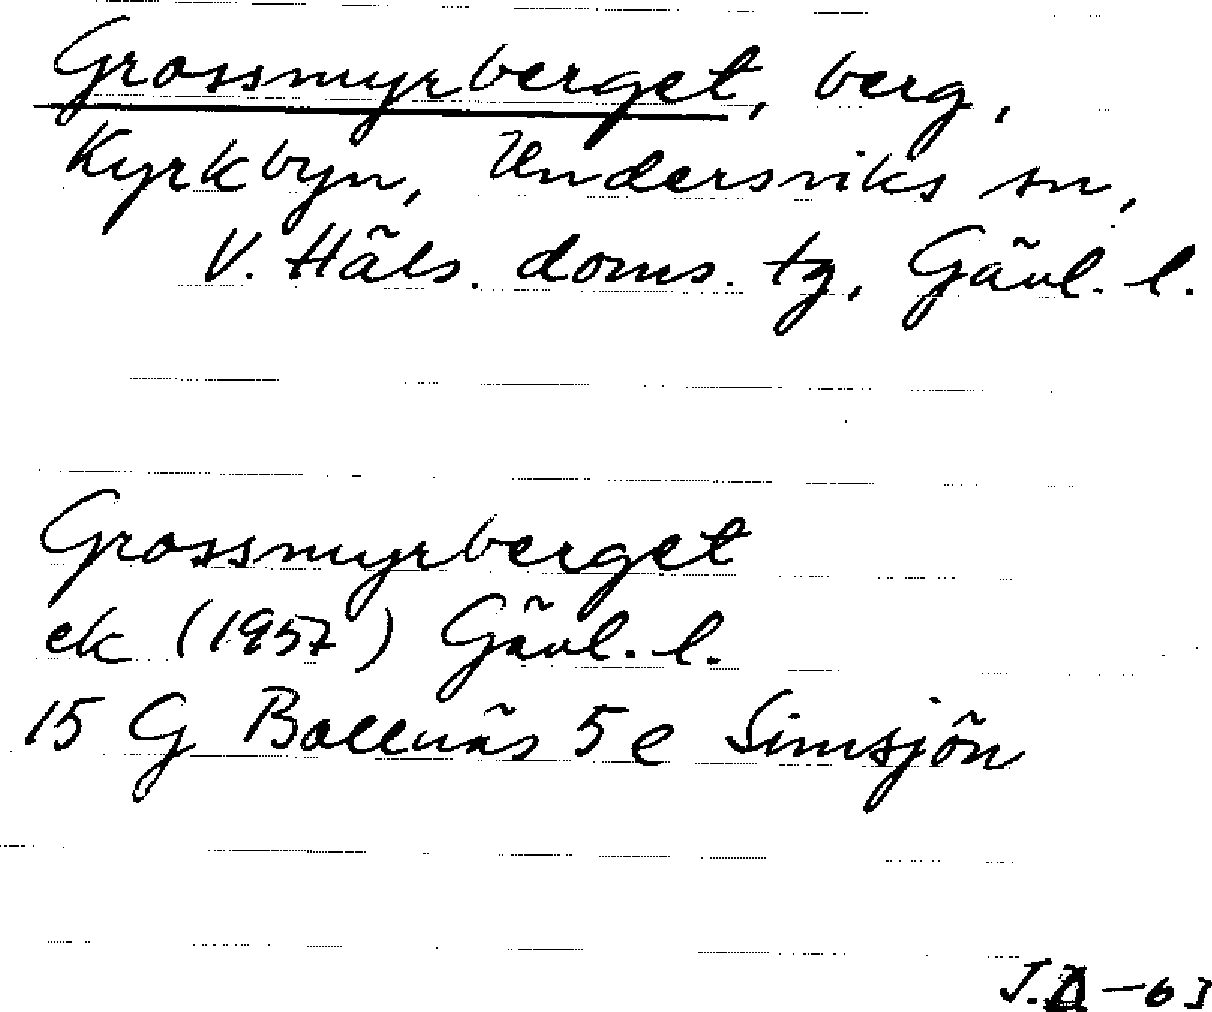 Grossmyrberget, berg,
Kyrkbyn, Undersviks sn,
V. Häls. doms. tg, Gävl. l.
Grossmyrberget
ek (1957) Gävl. l.
15 G Bollnäs 5 e Simsjön